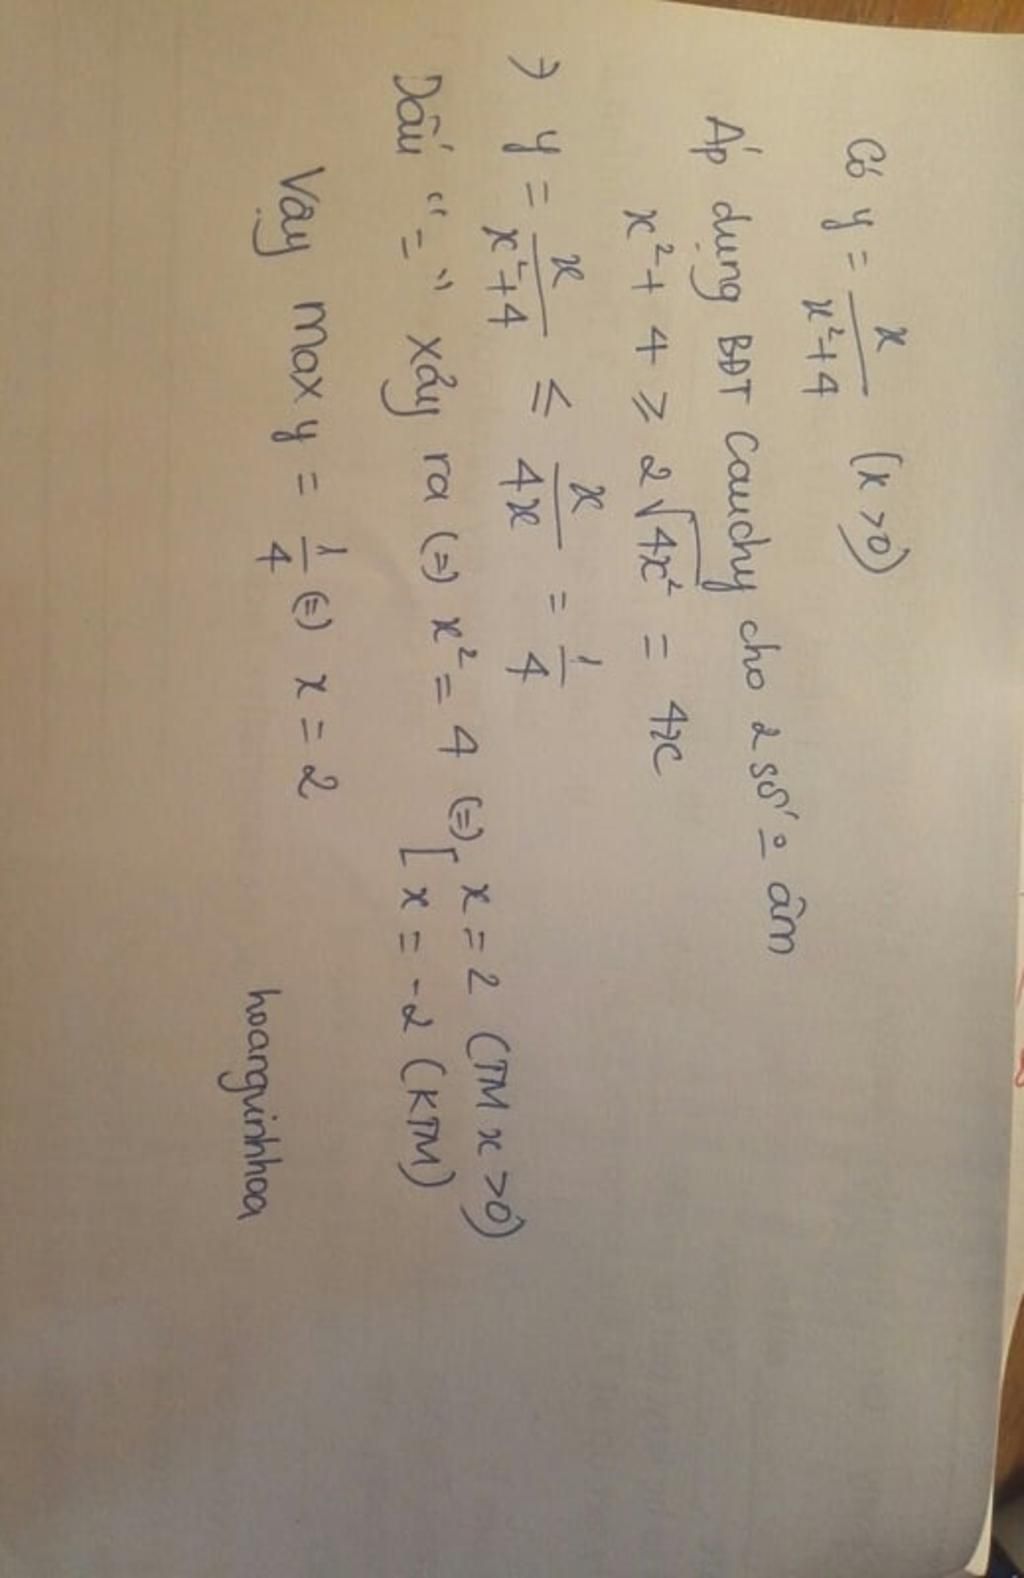 Có y = x/(x²+4) (x>0)
Áp dụng BĐT Cauchy cho 2 số ko âm
x² + 4 ≥ 2√(4x²) = 4x
→ y = x/(x²+4) ≤ x/(4x) = 1/4
Dấu "=" xảy ra (=) x² = 4 (=) [ x = 2 (TM x>0)
x = -2 (KTM)
Vậy max y = 1/4 (=) x = 2
hoangvinhhoa